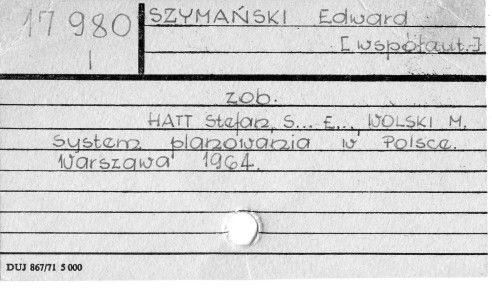 17 980
I
SZYMAŃSKI Edward
[współaut.]
zob.
HATT Stefan, S... E..., WOLSKI M.
System planowania w Polsce.
Warszawa 1964.
DUJ 867/71 5 000